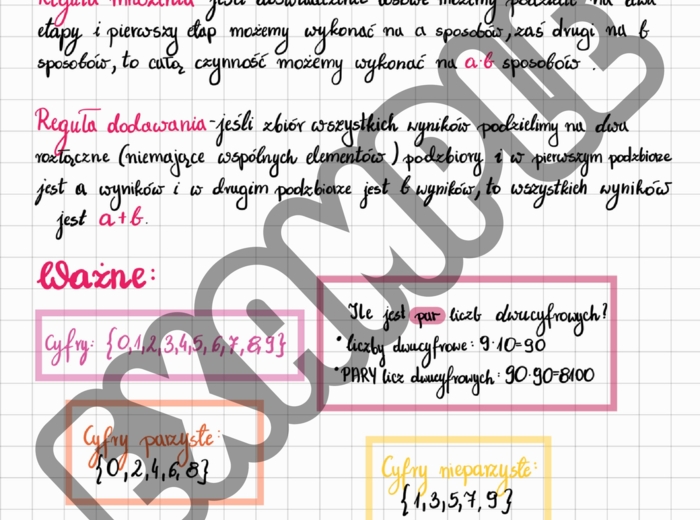 Reguła mnożenia - jeśli doświadczenie losowe możemy podzielić na dwa
etapy i pierwszy etap możemy wykonać na a sposobów, zaś drugi na b
sposobów, to całą czynność możemy wykonać na a·b sposobów.
Reguła dodawania - jeśli zbiór wszystkich wyników podzielimy na dwa
rozłączne (niemające wspólnych elementów) podzbiory i w pierwszym podzbiorze
jest a wyników i w drugim podzbiorze jest b wyników, to wszystkich wyników
jest a+b.
Ważne:
Cyfry: {0,1,2,3,4,5,6,7,8,9}
Ile jest par liczb dwucyfrowych?
• liczby dwucyfrowe: 9·10=90
• PARY licz dwucyfrowych: 90·90=8100
Cyfry parzyste:
{0,2,4,6,8}
Cyfry nieparzyste:
{1,3,5,7,9}
EXAMPLE